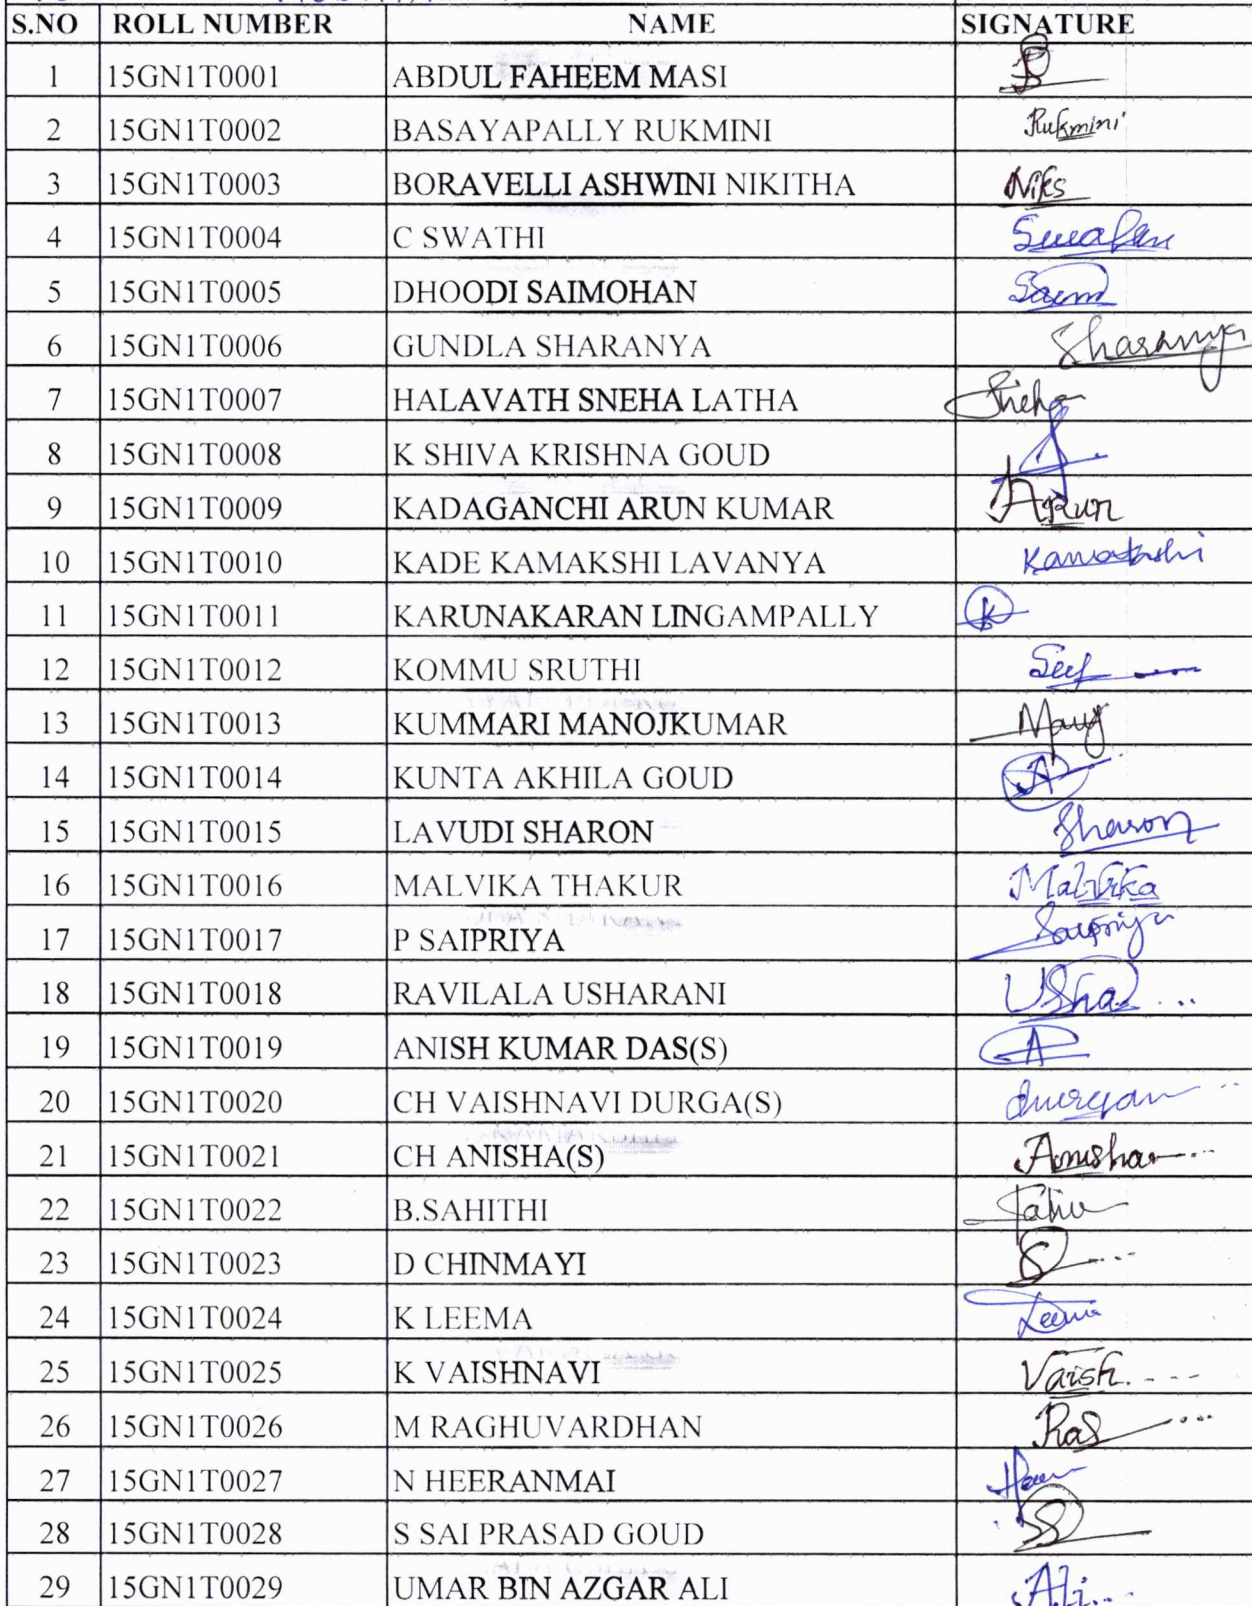 S.NO ROLL NUMBER NAME SIGNATURE
1 15GN1T0001 ABDUL FAHEEM MASI
2 15GN1T0002 BASAYAPALLY RUKMINI Rukmini
3 15GN1T0003 BORAVELLI ASHWINI NIKITHA Niks
4 15GN1T0004 C SWATHI
5 15GN1T0005 DHOODI SAIMOHAN
6 15GN1T0006 GUNDLA SHARANYA Sharanya
7 15GN1T0007 HALAVATH SNEHA LATHA Sneha
8 15GN1T0008 K SHIVA KRISHNA GOUD
9 15GN1T0009 KADAGANCHI ARUN KUMAR Arun
10 15GN1T0010 KADE KAMAKSHI LAVANYA Kamakshi
11 15GN1T0011 KARUNAKARAN LINGAMPALLY K
12 15GN1T0012 KOMMU SRUTHI
13 15GN1T0013 KUMMARI MANOJKUMAR
14 15GN1T0014 KUNTA AKHILA GOUD A
15 15GN1T0015 LAVUDI SHARON Sharon
16 15GN1T0016 MALVIKA THAKUR Malvika
17 15GN1T0017 P SAIPRIYA Saipriya
18 15GN1T0018 RAVILALA USHARANI Usha
19 15GN1T0019 ANISH KUMAR DAS(S) A
20 15GN1T0020 CH VAISHNAVI DURGA(S)
21 15GN1T0021 CH ANISHA(S) Anisha
22 15GN1T0022 B.SAHITHI
23 15GN1T0023 D CHINMAYI
24 15GN1T0024 K LEEMA Leema
25 15GN1T0025 K VAISHNAVI Vaish
26 15GN1T0026 M RAGHUVARDHAN
27 15GN1T0027 N HEERANMAI
28 15GN1T0028 S SAI PRASAD GOUD
29 15GN1T0029 UMAR BIN AZGAR ALI Ali